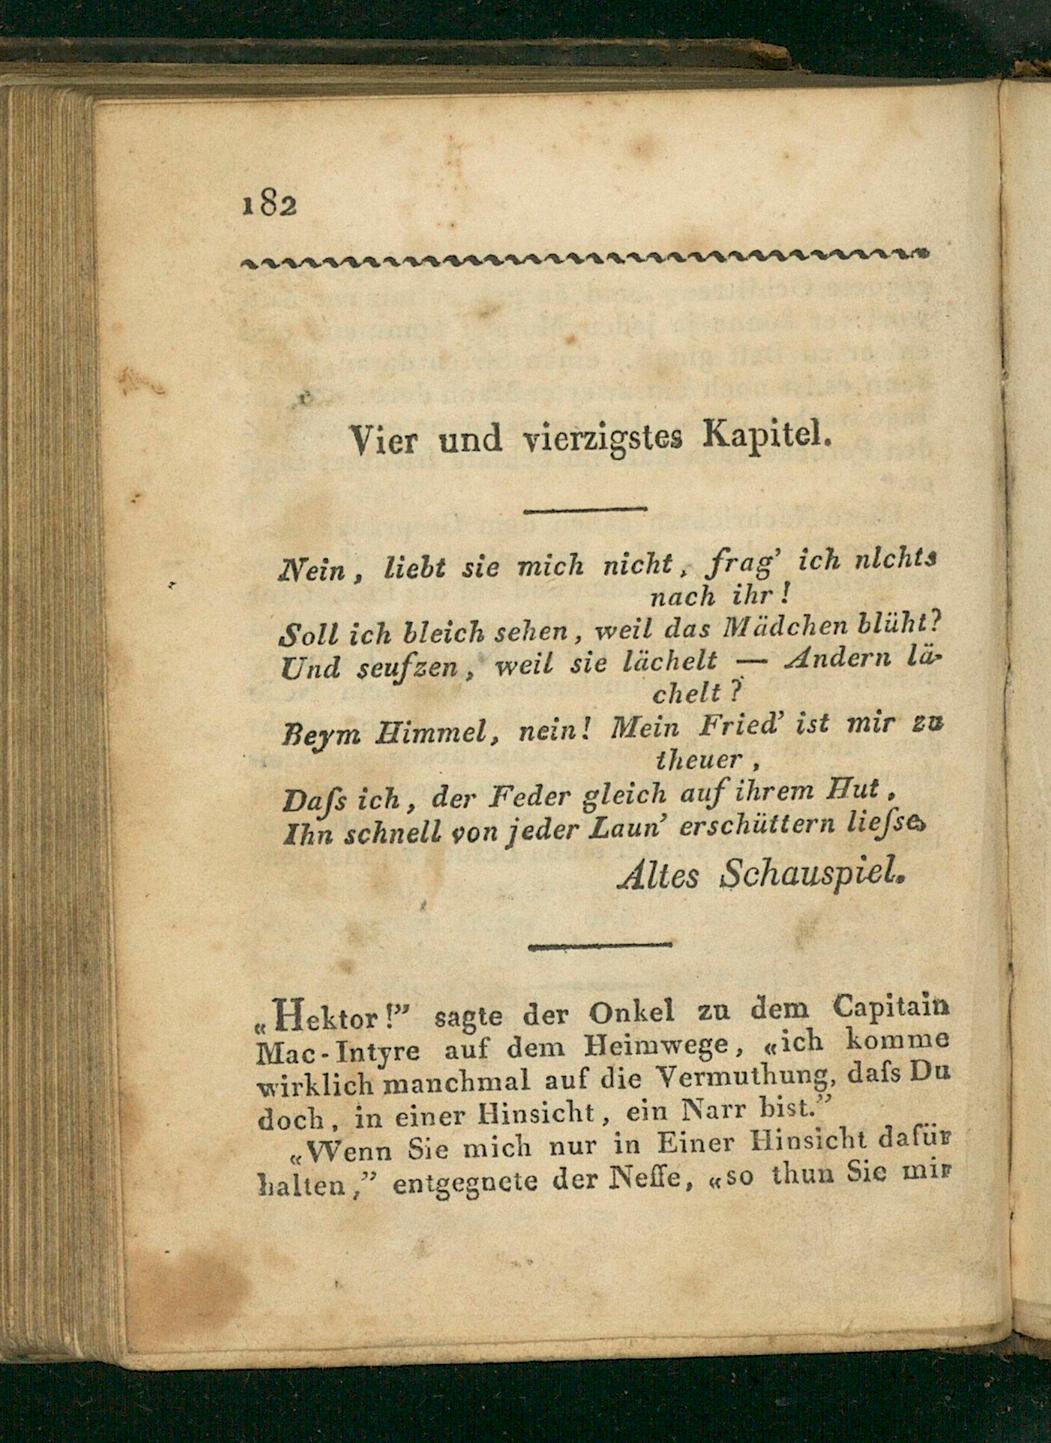 182
Vier und vierzigstes Kapitel.
Nein, liebt sie mich nicht, frag' ich nIchts
nach ihr!
Soll ich bleich sehen, weil das Mädchen blüht?
Und seufzen, weil sie lächelt — Andern lä-
chelt?
Beym Himmel, nein! Mein Fried' ist mir zu
theuer,
Daſs ich, der Feder gleich auf ihrem Hut,
Ihn schnell von jeder Laun' erschüttern lieſse.
Altes Schauspiel.
„Hektor!” sagte der Onkel zu dem Capitain
Mac-Intyre auf dem Heimwege, «ich komme
wirklich manchmal auf die Vermuthung, daſs Du
doch, in einer Hinsicht, ein Narr bist.”
«Wenn Sie mich nur in Einer Hinsicht dafür
halten,” entgegnete der Neffe, «so thun Sie mir